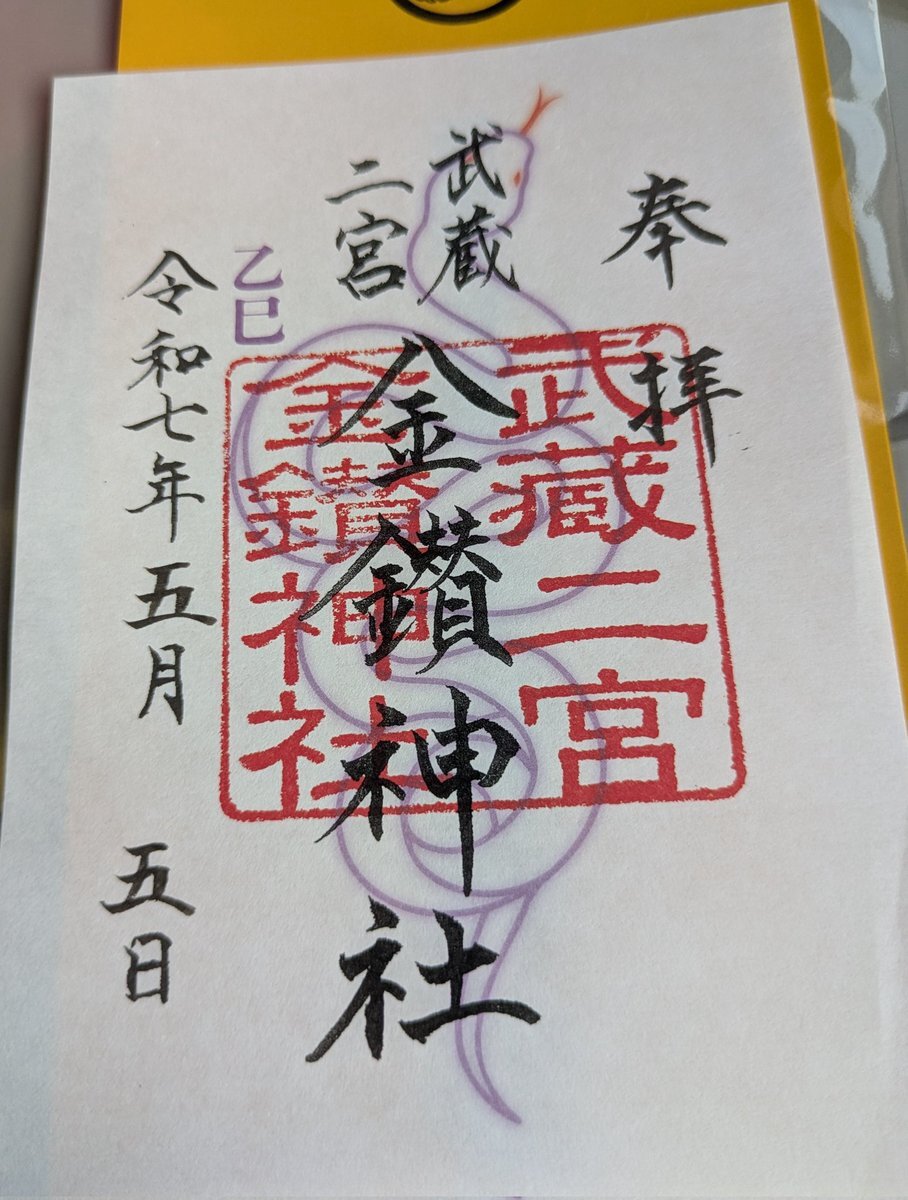 奉拝
武蔵
二宮
金鑚神社
乙巳
令和七年五月五日
武蔵二宮
金鑚神社